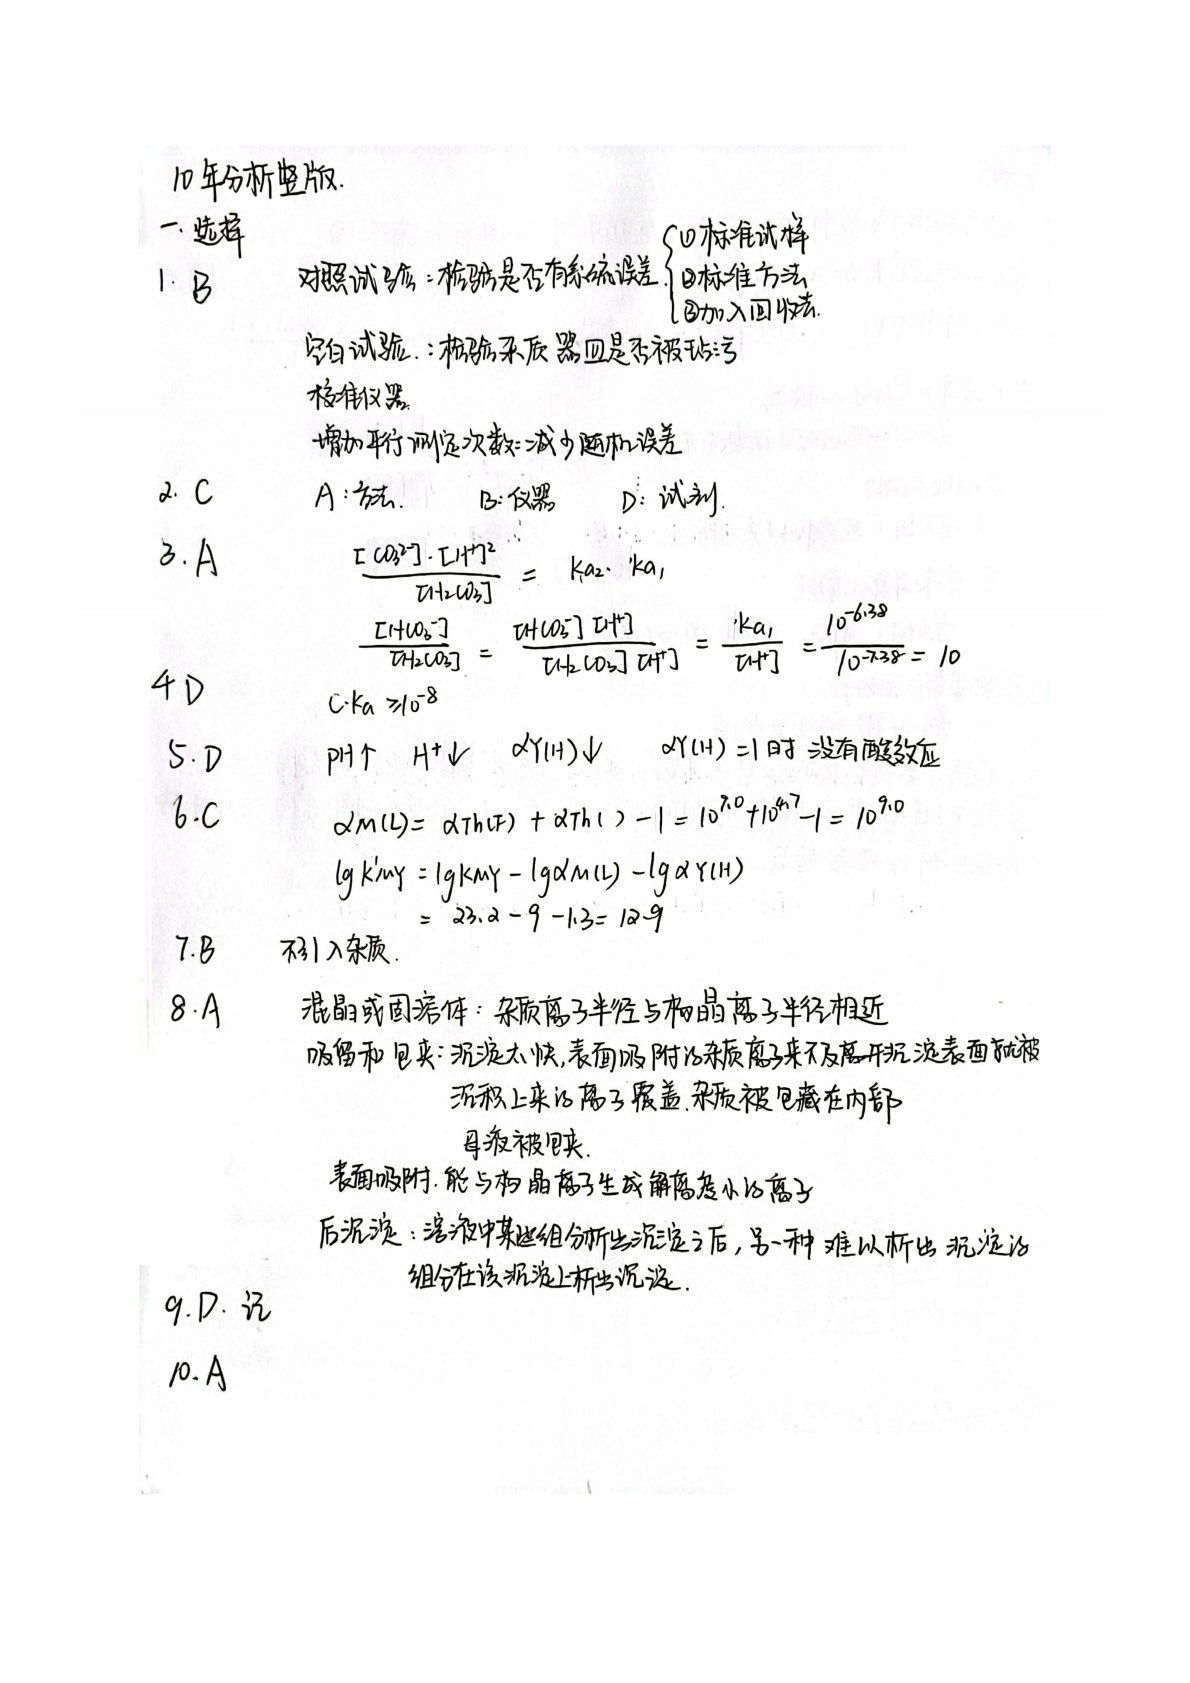 10年分析整版.
一. 选择
1. B 对照试验:检验是否有系统误差. {①标准试样
②标准方法
③加入回收法.
空白试验.:检验杂质 器皿是否被玷污
校准仪器.
增加平行测定次数:减少随机误差
2. C A:方法. B:仪器 D: 试剂.
3. A [CO₃²⁻]·[H⁺]² / [H₂CO₃] = Ka₂· Ka₁
[HCO₃⁻] / [H₂CO₃] = [HCO₃⁻][H⁺] / [H₂CO₃][H⁺] = Ka₁ / [H⁺] = 10^-6.38 / 10^-7.38 = 10
4 D C·Ka ≥10⁻⁸
5. D PH↑ H⁺↓ αY(H)↓ αY(H)=1时 没有酸效应
6. C αM(L)= αTh(F) + αTh( ) -1 = 10^9.0+10^4.7-1 = 10^9.0
lgK'MY = lgKMY - lgαM(L) - lgαY(H)
= 23.2 - 9 - 1.3 = 12.9
7. B 不引入杂质.
8. A 混晶或固溶体: 杂质离子半径与构晶离子半径相近
吸留和包夹:沉淀太快,表面吸附的杂质离子来不及离开沉淀表面就被
沉积上来的离子覆盖.杂质被包藏在内部
母液被包夹.
表面吸附.能与构晶离子生成解离度小的离子
后沉淀:溶液中某些组分析出沉淀之后,另一种难以析出沉淀的
组分在该沉淀上析出沉淀.
9. D. 记
10. A